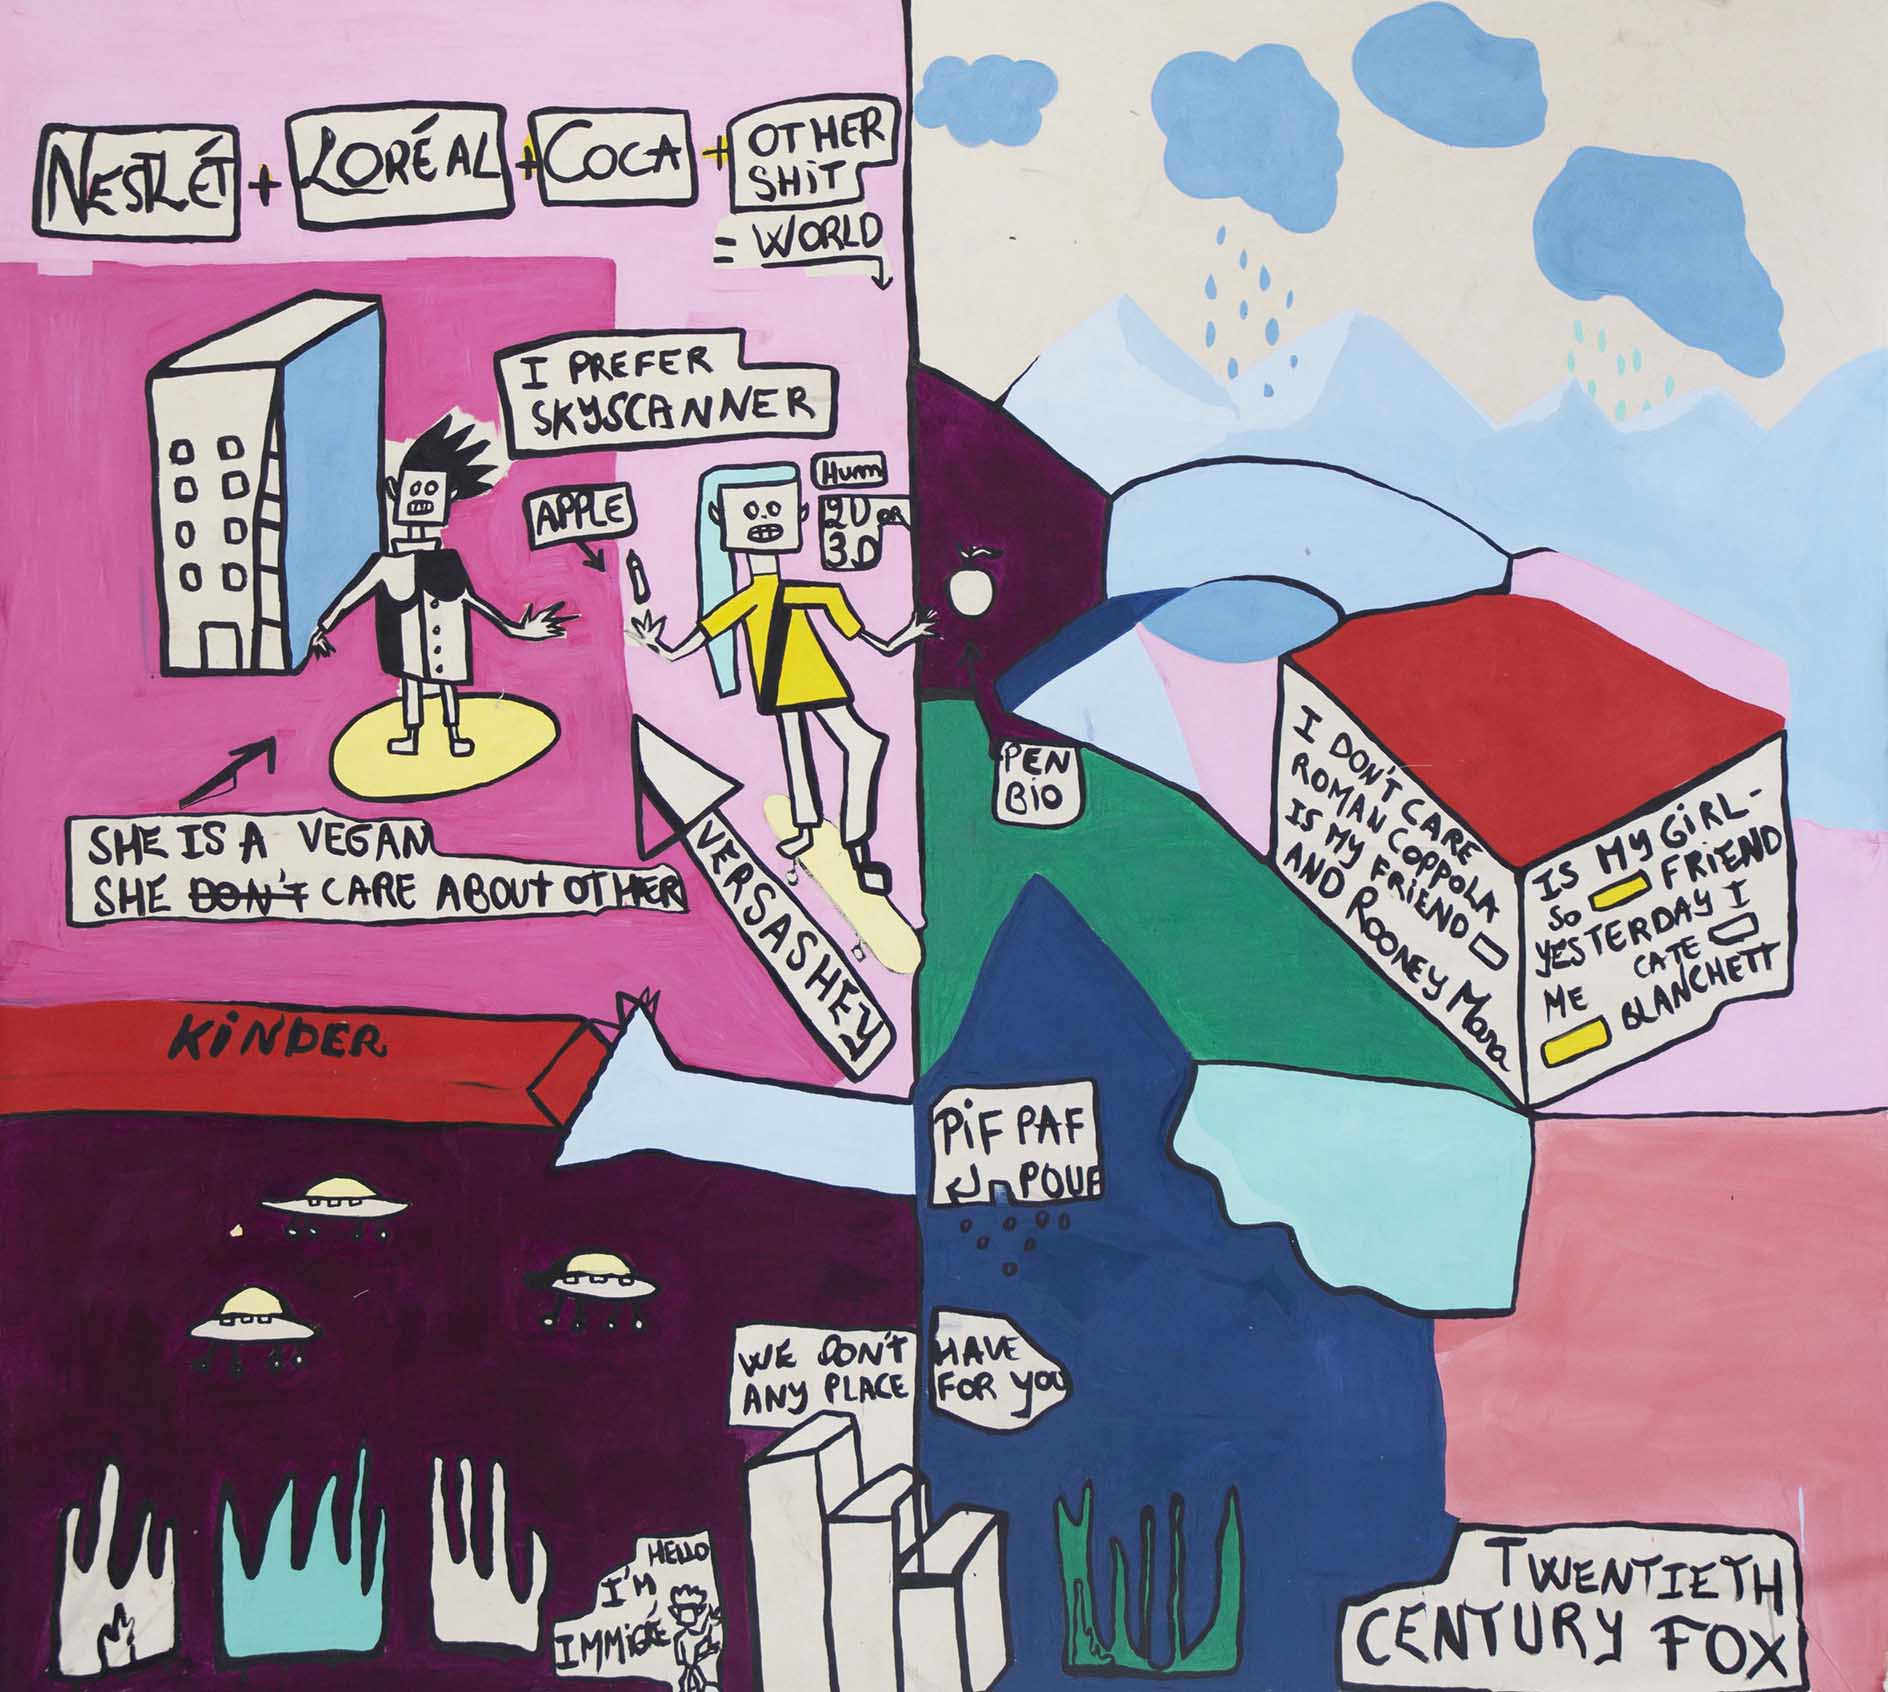 NESTLÉT + LORÉAL + COCA + OTHER
SHIT
= WORLD
I PREFER
SKYSCANNER
APPLE
Hum
2D OR
3.D
SHE IS A VEGAN
SHE DON'T CARE ABOUT OTHER
VERSASHEY
KINDER
PEN
BIO
I DON'T CARE
ROMAN COPPOLA
IS MY FRIEND
AND ROONEY Mara
IS MY GIRL-
FRIEND
SO
YESTERDAY I
CATE
ME
BLANCHETT
PIF PAF
POUF
WE DON'T HAVE
ANY PLACE FOR YOU
HELLO
I'M
IMMIGRÉ
TWENTIETH
CENTURY FOX